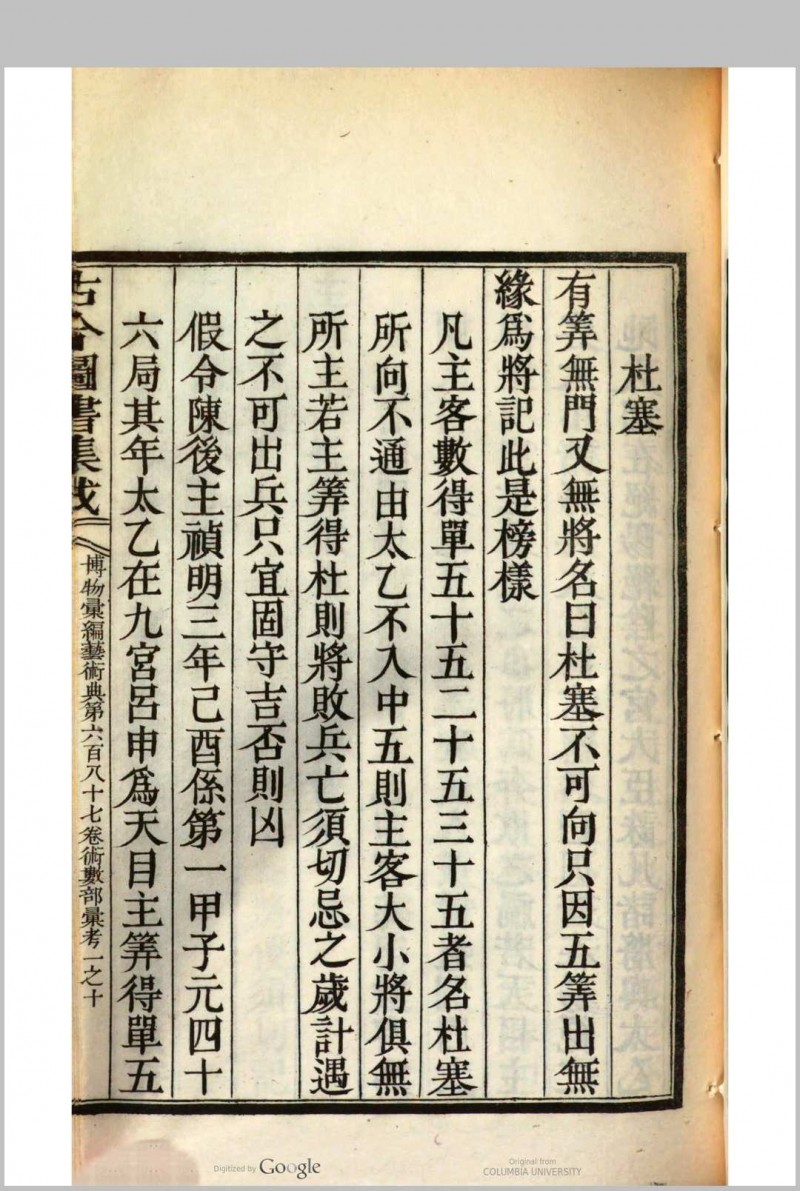 杜塞
有筭無門又無將名曰杜塞不可向只因五筭出無
緣爲將記此是榜樣
凡主客數得單五十五二十五三十五者名杜塞
所向不通由太乙不入中五則主客大小將俱無
所主若主筭得杜則將敗兵亡須切忌之歲計遇
之不可出兵只宜固守吉否則凶
假令陳後主禎明三年己酉係第一甲子元四十
六局其年太乙在九宮呂申爲天目主筭得單五
古今圖書集成
博物彙編藝術典第六百八十七卷術數部彙考一之十
Digitized by Google
Original from
COLUMBIA UNIVERSITY